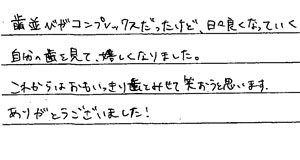 歯並びがコンプレックスだったけど、日々良くなっていく
自分の歯を見て、嬉しくなりました。
これからはおもいっきり歯をみせて笑おうと思います.
ありがとうございました!